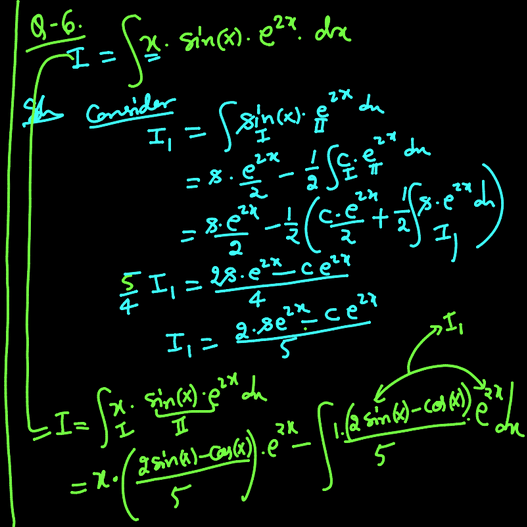 Q-6.
I = ∫ x. sin(x). e^{2x}. dx
Sol^n Consider
I₁ = ∫ sin(x). e^{2x} dx
I II
= s. e^{2x}/2 - 1/2 ∫ c. e^{2x} dx
I II
= s.e^{2x}/2 - 1/2 ( c.e^{2x}/2 + 1/2 ∫ s.e^{2x} dx )
I₁
5/4 I₁ = (2s.e^{2x} - c e^{2x})/4
I₁ = (2.se^{2x} - c e^{2x})/5
I₁
I = ∫ x. sin(x).e^{2x} dx
I II
= x. ( (2sin(x)-cos(x))/5 ).e^{2x} - ∫ 1.(2sin(x)-cos(x))/5 .e^{2x} dx